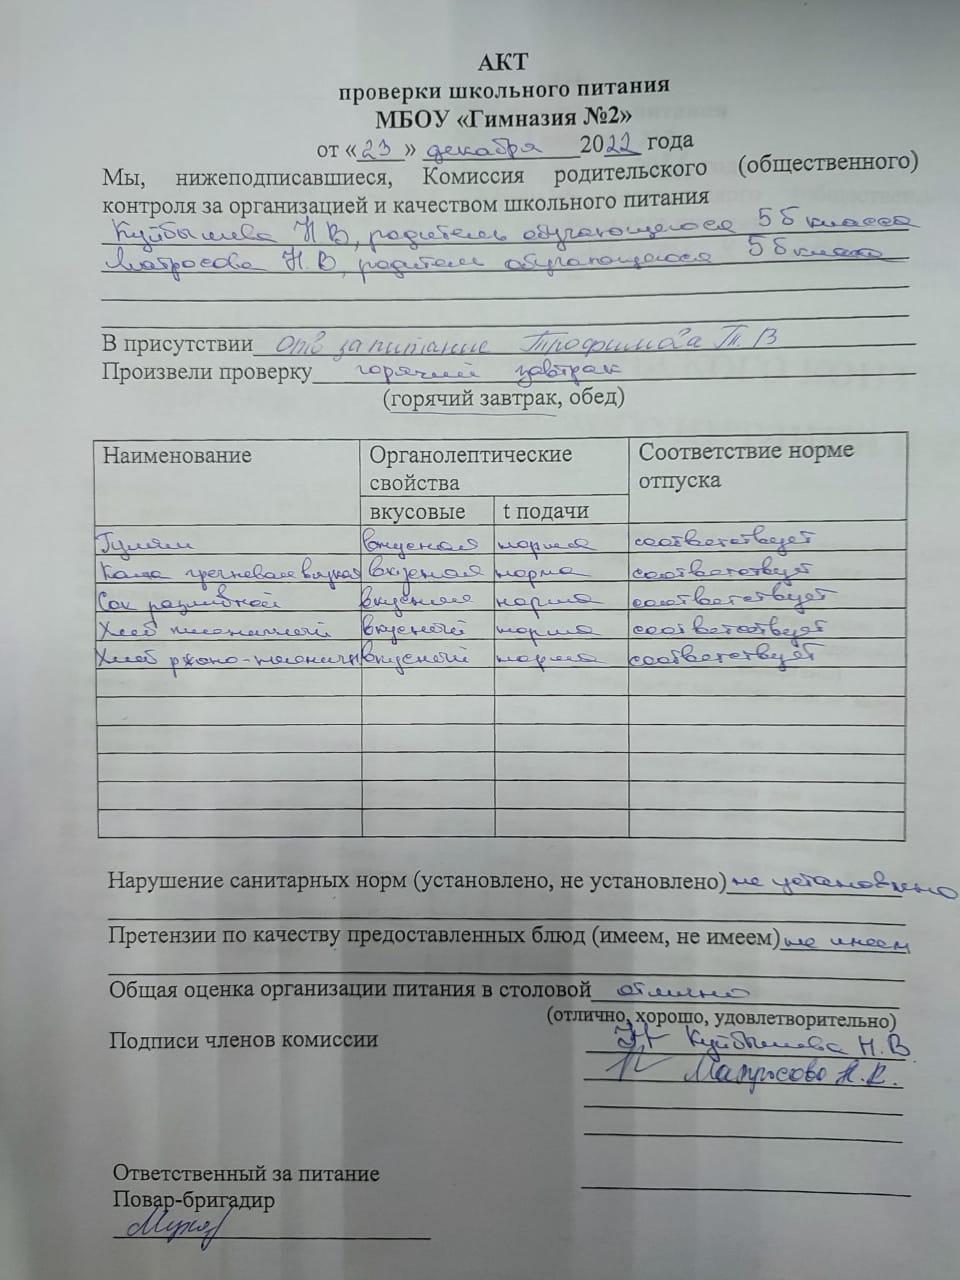 АКТ
проверки школьного питания
МБОУ «Гимназия №2»
от «23» декабря 2022 года
Мы, нижеподписавшиеся, Комиссия родительского (общественного)
контроля за организацией и качеством школьного питания
Куйбышева Н В, родитель обучающегося 5 б класса
Матросова Н. В, родитель обучающегося 5 б класса
В присутствии отв за питание Трофимова Т. В
Произвели проверку горячий завтрак
(горячий завтрак, обед)
Наименование Органолептические свойства Соответствие норме отпуска
вкусовые t подачи
Гуляш вкусная норма соответствует
Каша гречневая вязкая вкусная норма соответствует
Сок разливной вкусная норма соответствует
Хлеб пшеничный вкусный норма соответствует
Хлеб ржано-пшеничн вкусный норма соответствует
Нарушение санитарных норм (установлено, не установлено) не установлено
Претензии по качеству предоставленных блюд (имеем, не имеем) не имеем
Общая оценка организации питания в столовой отлично
(отлично, хорошо, удовлетворительно)
Подписи членов комиссии Куйбышева Н.В
Матросова Н.В.
Ответственный за питание
Повар-бригадир